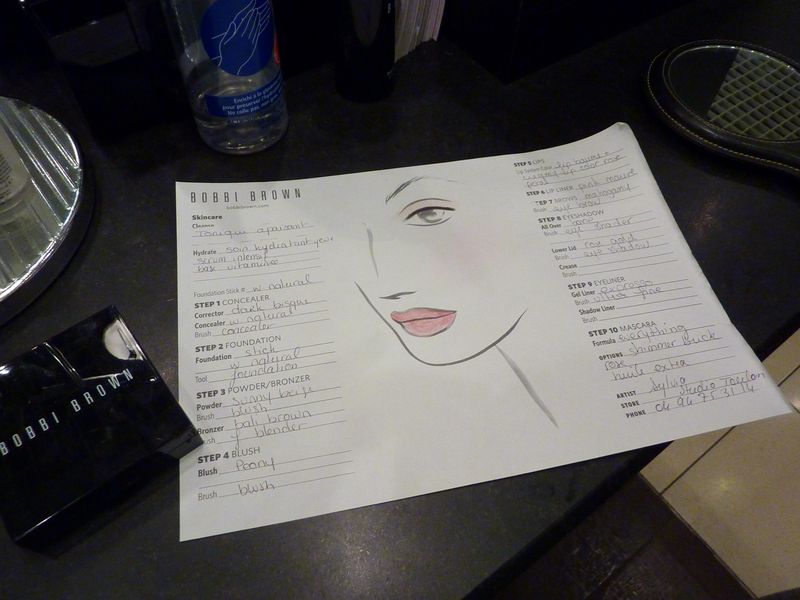 Enrichi à la
pour préserver l'hydra
Ne colle pas, non
BOBBI BROWN
bobbibrown.com
Skincare
Cleanse
Tonique apaisant
Hydrate soin hydratant yeux
serum intensif
base vitaminée
Foundation Stick # w natural
STEP 1 CONCEALER
Corrector dark bisque
Concealer w natural
Brush concealer
STEP 2 FOUNDATION
Foundation stick
w natural
Tool foundation
STEP 3 POWDER/BRONZER
Powder sunny beige
Brush blush
Bronzer pale brown
Brush f blender
STEP 4 BLUSH
Blush Peony
Brush blush
STEP 5 LIPS
Lip System/Color lip baume +
lip color rose
petal
STEP 6 LIP LINER pink mauve
STEP 7 BROWS mahogany
Brush eye brow
STEP 8 EYESHADOW
All Over
Brush eye shader
Lower Lid rose gold
Brush eye shadow
Crease
Brush
STEP 9 EYELINER
Gel Liner espresso
Brush ultra fine
Shadow Liner
Brush
STEP 10 MASCARA
Formula everything
OPTIONS shimmer brick
rose
huile extra
ARTIST Sylvia
STORE Studio Toulon
PHONE 04 94 75 31 14
BOBBI BROWN